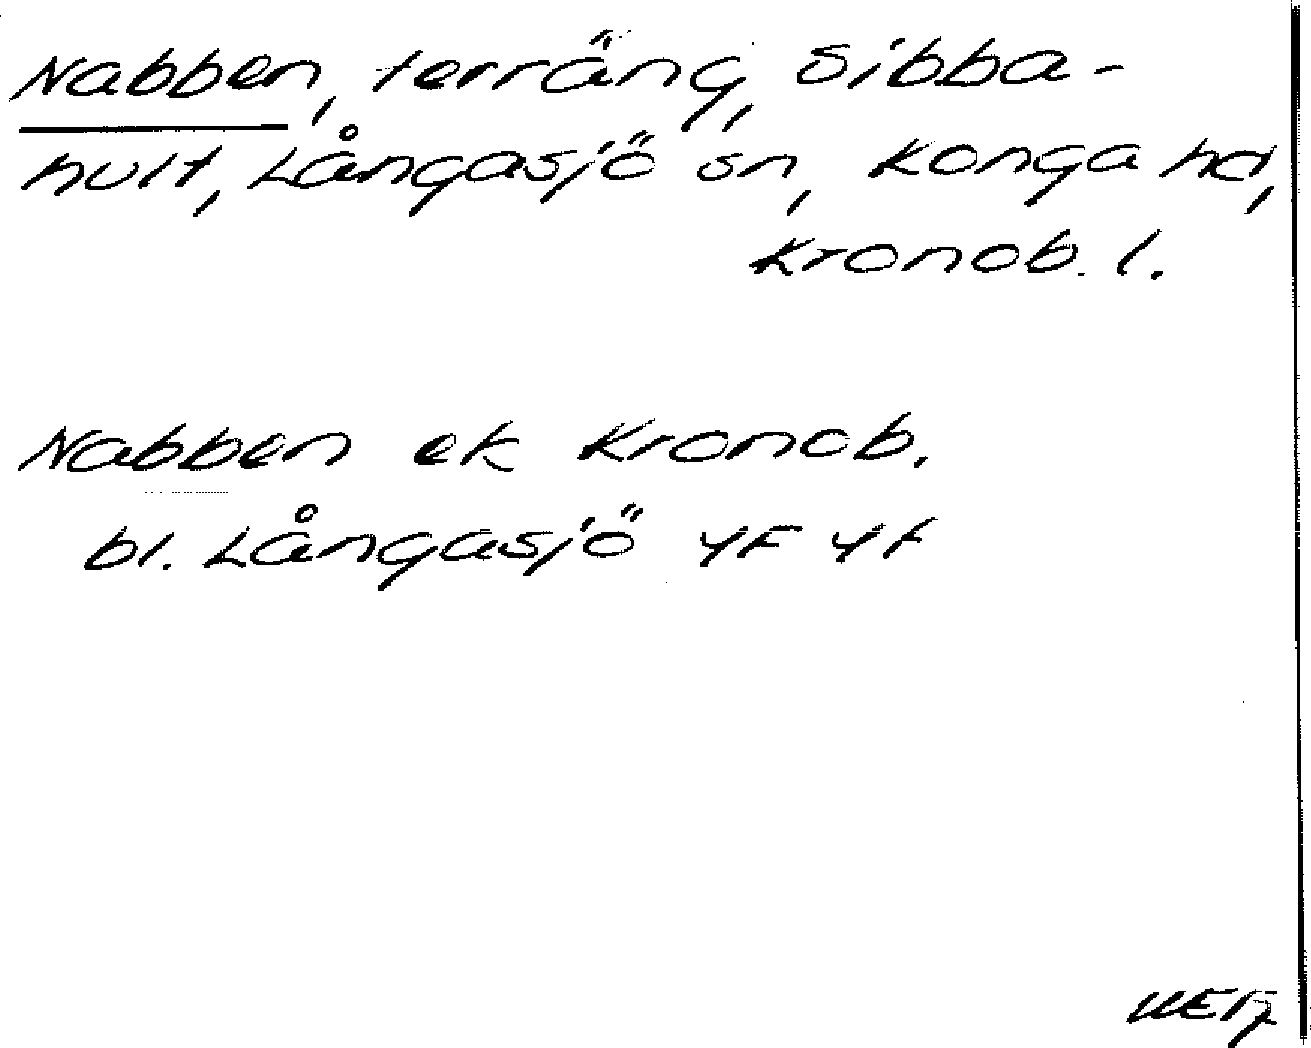 Nabben, terräng, Sibba-
hult, Långasjö sn, Konga hd,
Kronob. l.
Nabben ek Kronob.
bl. Långasjö 4F 4f